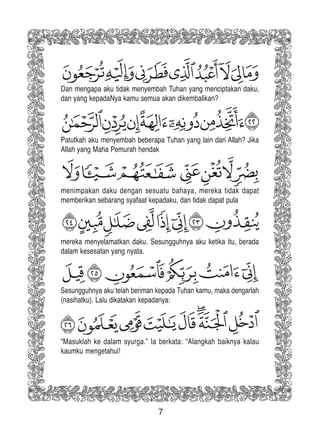 وَمَالِىَ لَآ أَعْبُدُ ٱلَّذِى فَطَرَنِى وَإِلَيْهِ تُرْجَعُونَ
Dan mengapa aku tidak menyembah Tuhan yang menciptakan daku,
dan yang kepadaNya kamu semua akan dikembalikan?
﴿٢٢﴾ ءَأَتَّخِذُ مِن دُونِهِۦٓ ءَالِهَةً إِن يُرِدْنِ ٱلرَّحْمَٰنُ
Patutkah aku menyembah beberapa Tuhan yang lain dari Allah? Jika
Allah yang Maha Pemurah hendak
بِضُرٍّ لَّا تُغْنِ عَنِّى شَفَٰعَتُهُمْ شَيْـًٔا وَلَا
menimpakan daku dengan sesuatu bahaya, mereka tidak dapat
memberikan sebarang syafaat kepadaku, dan tidak dapat pula
يُنقِذُونِ ﴿٢٣﴾ إِنِّىٓ إِذًا لَّفِى ضَلَٰلٍ مُّبِينٍ ﴿٢٤﴾
mereka menyelamatkan daku. Sesungguhnya aku ketika itu, berada
dalam kesesatan yang nyata.
إِنِّىٓ ءَامَنتُ بِرَبِّكُمْ فَٱسْمَعُونِ ﴿٢٥﴾ قِيلَ
Sesungguhnya aku telah beriman kepada Tuhan kamu, maka dengarlah
(nasihatku). Lalu dikatakan kepadanya:
ٱدْخُلِ ٱلْجَنَّةَ ۖ قَالَ يَٰلَيْتَ قَوْمِى يَعْلَمُونَ ﴿٢٦﴾
“Masuklah ke dalam syurga.” Ia berkata: “Alangkah baiknya kalau
kaumku mengetahui!
7